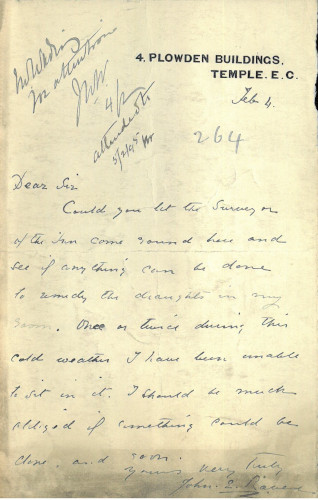 for attention
4/2
attended to
5/2/05
4, PLOWDEN BUILDINGS,
TEMPLE. E.C.
Feb 4.
264
Dear Sir
Could you let the Surveyor
of the Inn come round here and
see if anything can be done
to remedy the draughts in my
room. Once or twice during this
cold weather I have been unable
to sit in it. I should be much
obliged if something could be
done, and soon.
Yours very truly
John